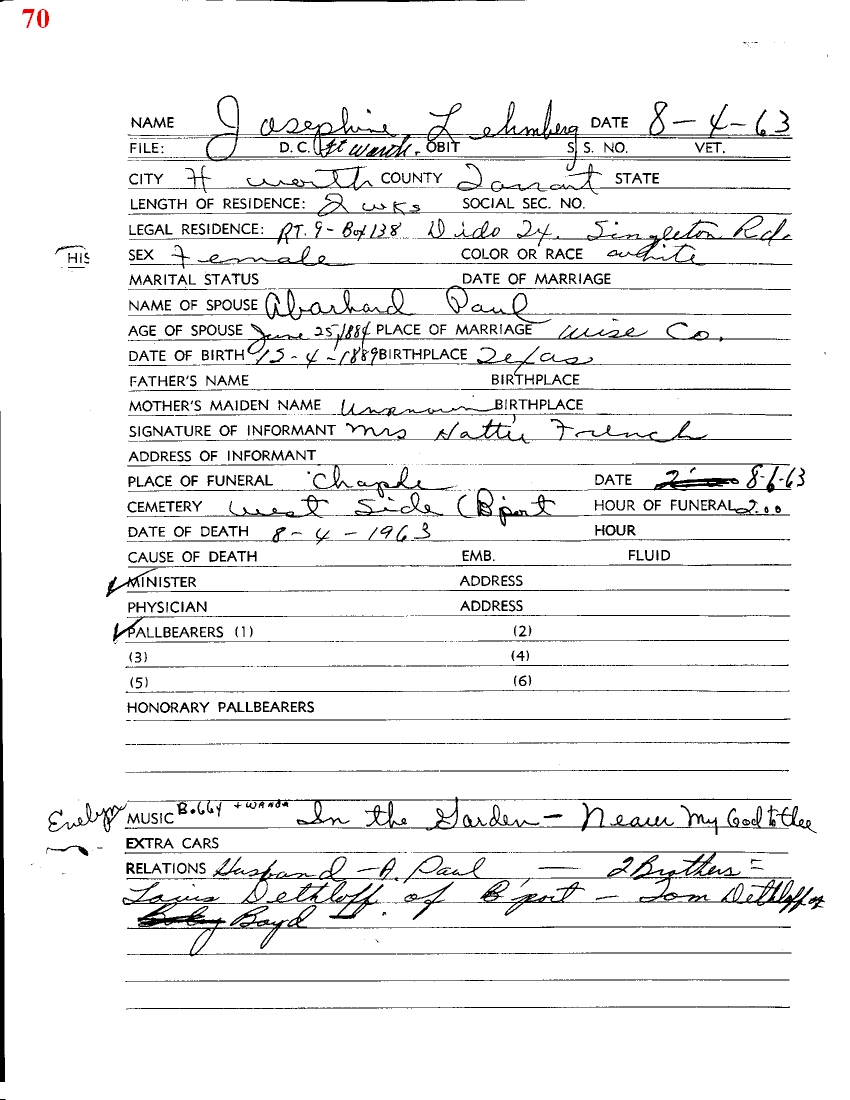 70
NAME Josephine Lehmberg DATE 8-4-63
FILE: D.C. Ft Worth. OBIT S. S. NO. VET.
CITY Ft worth COUNTY Tarrant STATE
LENGTH OF RESIDENCE: 2 wks SOCIAL SEC. NO.
LEGAL RESIDENCE: RT. 9 - Box 138 Dido 24. Singleton Rd.
HIS SEX Female COLOR OR RACE white
MARITAL STATUS DATE OF MARRIAGE
NAME OF SPOUSE Abarhard Paul
AGE OF SPOUSE June 25, 1884 PLACE OF MARRIAGE Wise Co.
DATE OF BIRTH -4-1889 BIRTHPLACE Texas
FATHER'S NAME BIRTHPLACE
MOTHER'S MAIDEN NAME Unknown BIRTHPLACE
SIGNATURE OF INFORMANT Mrs Hattie French
ADDRESS OF INFORMANT
PLACE OF FUNERAL Chaple DATE 8-6-63
CEMETERY West Side (B'port HOUR OF FUNERAL 2:00
DATE OF DEATH 8-4-1963 HOUR
CAUSE OF DEATH EMB. FLUID
MINISTER ADDRESS
PHYSICIAN ADDRESS
PALLBEARERS (1) (2)
(3) (4)
(5) (6)
HONORARY PALLBEARERS
Evelyn MUSIC Bobby + Wanda In the Garden - Nearer My God to thee
EXTRA CARS
RELATIONS Husband - A. Paul - 2 Brothers =
Louis Dethloff of B'port - Tom Dethloff of
Boyd